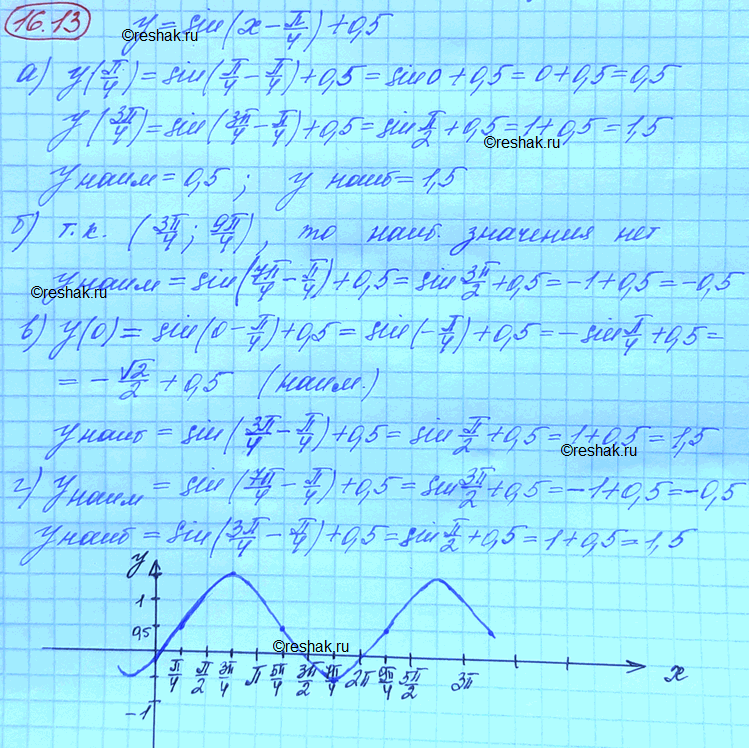 16.13 y = sin(x - π/4) + 0,5
©reshak.ru
а) y(π/4) = sin(π/4 - π/4) + 0,5 = sin 0 + 0,5 = 0 + 0,5 = 0,5
y(3π/4) = sin(3π/4 - π/4) + 0,5 = sin π/2 + 0,5 = 1 + 0,5 = 1,5
©reshak.ru
y наим = 0,5 ; y наиб = 1,5
б) т.к. (3π/4 ; 9π/4), то наиб. значения нет
y наим = sin(7π/4 - π/4) + 0,5 = sin 3π/2 + 0,5 = -1 + 0,5 = -0,5
©reshak.ru
в) y(0) = sin(0 - π/4) + 0,5 = sin(-π/4) + 0,5 = -sin π/4 + 0,5 =
= -√2/2 + 0,5 (наим.)
y наиб = sin(3π/4 - π/4) + 0,5 = sin π/2 + 0,5 = 1 + 0,5 = 1,5
©reshak.ru
г) y наим = sin(7π/4 - π/4) + 0,5 = sin 3π/2 + 0,5 = -1 + 0,5 = -0,5
y наиб = sin(3π/4 - π/4) + 0,5 = sin π/2 + 0,5 = 1 + 0,5 = 1,5
y
1
0,5
©reshak.ru
π/4 π/2 3π/4 π 5π/4 3π/2 7π/4 2π 9π/4 5π/2 3π x
-1